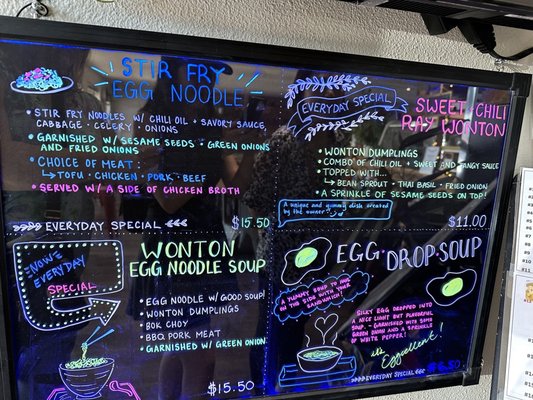 STIR FRY
EGG NOODLE
• STIR FRY NOODLES W/ CHILI OIL + SAVORY SAUCE,
CABBAGE • CELERY • ONIONS
• GARNISHED W/ SESAME SEEDS • GREEN ONIONS
AND FRIED ONIONS
• CHOICE OF MEAT:
↳ TOFU • CHICKEN • PORK • BEEF
• SERVED W/ A SIDE OF CHICKEN BROTH
EVERYDAY SPECIAL
$15.50
EVERYDAY SPECIAL
SWEET CHILI
RAY WONTON
• WONTON DUMPLINGS
• COMBO OF CHILI OIL + SWEET AND TANGY SAUCE
• TOPPED WITH...
↳ BEAN SPROUT • THAI BASIL • FRIED ONION
• A SPRINKLE OF SESAME SEEDS ON TOP!
A unique and yummy dish created by
the owner
$11.00
NOW EVERYDAY
SPECIAL
WONTON
EGG NOODLE SOUP
• EGG NOODLE W/ GOOD SOUP!
• WONTON DUMPLINGS
• BOK CHOY
• BBQ PORK MEAT
• GARNISHED W/ GREEN ONION
$15.50
EGG DROP SOUP
A YUMMY SOUP TO EAT
ON THE SIDE WITH YOUR
SANDWICH!
SILKY EGG DROPPED INTO
A NICE LIGHT BUT FLAVORFUL
SOUP • GARNISHED WITH
GREEN ONION AND A SPRINKLE
OF WHITE PEPPER!
it's Excellent!
EVERYDAY SPECIAL